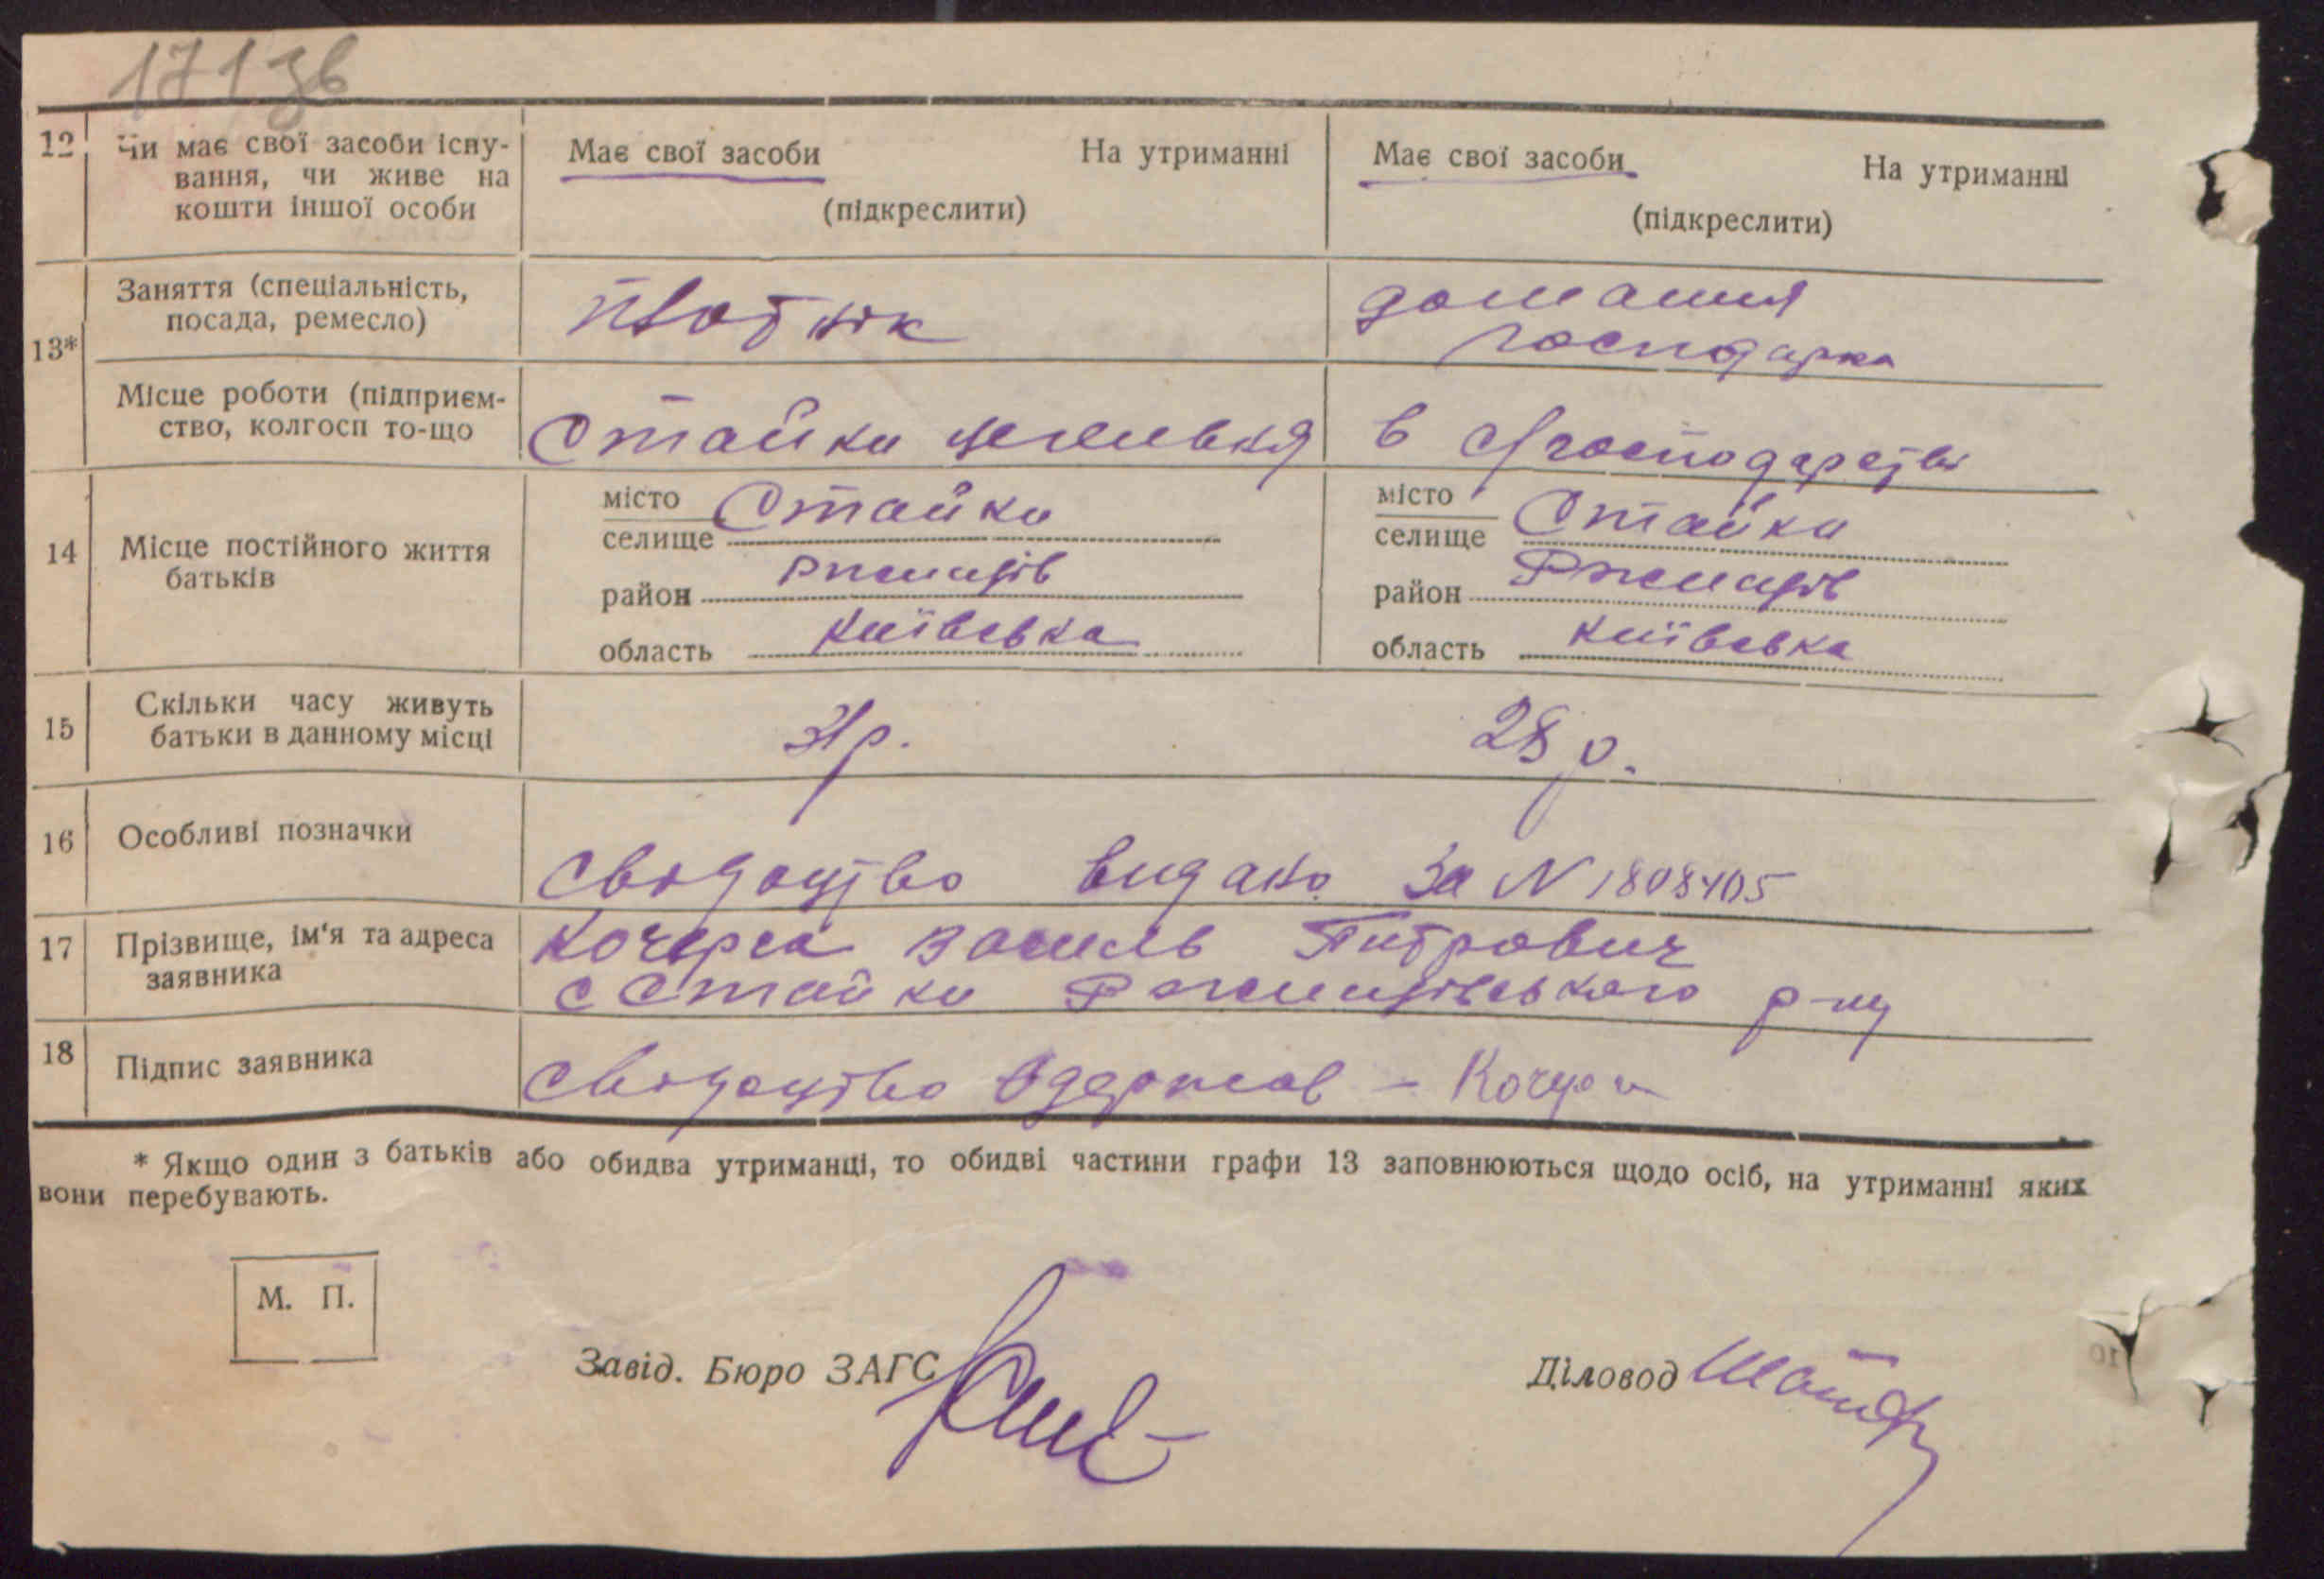 171 зв
12 Чи має свої засоби існу-
вання, чи живе на
кошти іншої особи
Має свої засоби На утриманні
(підкреслити)
Має свої засоби На утриманні
(підкреслити)
13*
Заняття (спеціальність,
посада, ремесло)
плотнік
домашня
господарка
Місце роботи (підприєм-
ство, колгосп то-що
Стайки
в с/господарстві
14 Місце постійного життя
батьків
місто
селище Стайки
район Ржищів
область Київська
місто
селище Стайки
район Ржищів
область Київська
15 Скільки часу живуть
батьки в данному місці
31 р.
28 р.
16 Особливі позначки
Свідоцтво видано За N 1808405
17 Прізвище, ім'я та адреса
заявника
Кочерга Василь Питрович
с Стайки Ржищівського р-ну
18 Підпис заявника
Свідоцтво Одержав -
* Якщо один з батьків або обидва утриманці, то обидві частини графи 13 заповнюються щодо осіб, на утриманні яких
вони перебувають.
М. П.
Завід. Бюро ЗАГС
Діловод